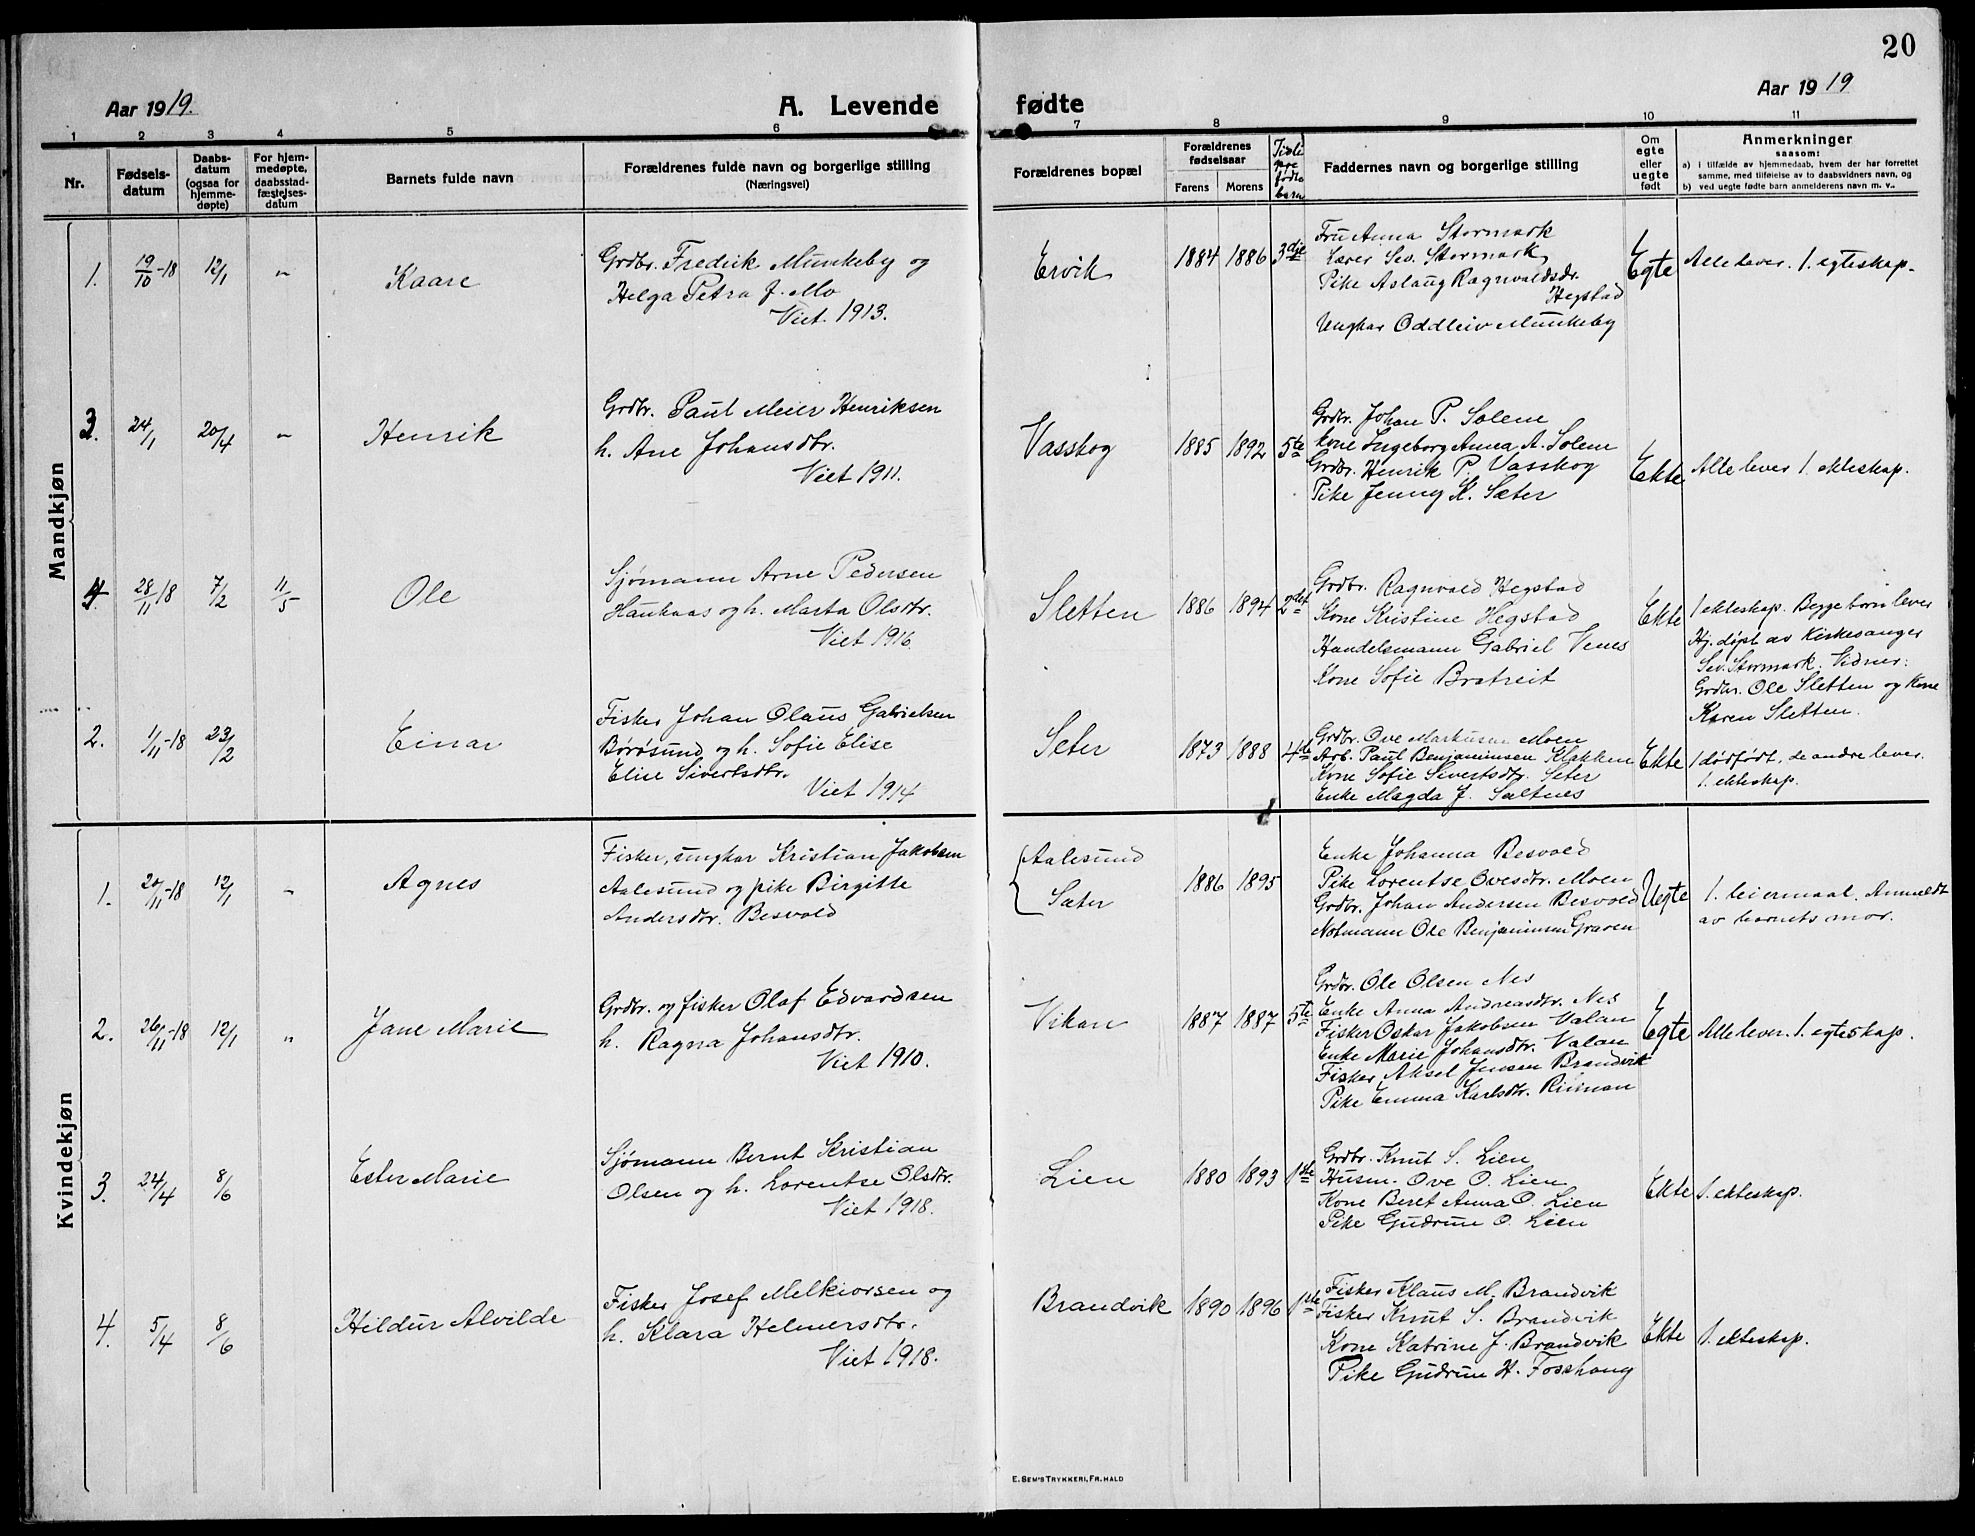 20
Aar 1919.
A. Levende fødte
Aar 1919
1 2 3 4 5 6 7 8 9 10 11
Nr.
Fødsels-
datum
Daabs-
datum
(ogsaa for
hjemme-
døpte)
For hjem-
medøpte,
daabsstad-
fæstelses-
datum
Barnets fulde navn
Forældrenes fulde navn og borgerlige stilling
(Næringsvei)
Forældrenes bopæl
Forældrenes
fødselsaar
Farens Morens
Faddernes navn og borgerlige stilling
Om
egte
eller
uegte
født
Anmerkninger
saasom:
a) i tilfælde av hjemmedaab, hvem der har forrettet
samme, med tilføielse av to daabsvidners navn, og
b) ved uegte fødte barn anmelderens navn m. v..
Mandkjøn
1. 19/10-18 12/1 "
Kaare
Grdbr. Fredrik Munkeby og
Helga Petra J. Mo
Viet. 1913.
Ervik
1884 1886 3die
Fru Anna Stormark
Lærer Sev. Stormark
Pike Aslaug Ragnvaldsdr.
Hegstad
Ungkar Oddleiv Munkeby
Egte
Alle lever. 1. egteskap.
3. 24/1 20/4 "
Henrik
Grdbr. Paul Meier Henriksen
h. Ane Johansdtr.
Viet 1911.
Vasskog
1885 1892 5te
Grdbr. Johan P. Solem
Kone Ingeborg Anna A. Solem
Grdbr. Henrik P. Vasskog
Pike Jenny K. Sæter
Ekte
Alle lever 1. ekteskap.
4 28/11 18 7/2 11/5
Ole
Sjømann Arne Pedersen
Haukaas og h. Marta Olsdtr.
Viet 1916.
Sletten
1886 1894 2det
Grdbr. Ragnvald Hegstad
Kone Kristine Hegstad
Handelsmann Gabriel Venes
Kone Sofie Bratreit
Ekte
1 ekteskap. Begge born lever
Hj. døpt av Kirkesanger
Sev. Stormark. Vidner:
Grdbr. Ole Sletten og Kone
Karen Sletten.
2. 1/11-18 23/2
Einar
Fisker Johan Olaus Gabrielsen
Børøsund og h. Sofie Elise
Elise Sivertsdtr.
Viet 1914
Seter
1873 1888 4de
Grdbr. Ove Markusen Moen
Arb. Paul Benjaminsen Klakken
Kone Sofie Sivertsdtr. Seter
Enke Magda J. Saltnes
Ekte
1 dødfødt, de andre lever.
1. ekteskap.
Kvindekjøn
1. 20/11-18 12/1 "
Agnes
Fisker, ungkar Kristian Jakobsen
Aalesund og pike Birgitte
Andersdtr. Besvold
Aalesund
Sæter
1886 1895
Enke Johanna Besvold
Pike Lorentse Ovesdtr. Moen
Grdbr. Johan Andersen Besvold
Notmann Ole Benjaminsen Graven
Uegte
1. leiermaal. Anmeldt
av barnets mor.
2. 26/11-18 12/1 "
Jane Marie
Grdbr. og fisker Olaf Edvardsen
h. Ragna Johansdtr.
Viet 1910.
Vikan
1887 1887 5te
Grdbr. Ole Olsen Nes
Enke Anna Andreasdtr. Nes
Fisker Oskar Jakobsen Valan
Enke Marie Johansdtr. Valan
Fisker Aksel Jensen Brandvik
Pike Emma Karlsdtr.
Egte
Alle lever. 1. egteskap.
3. 24/4 8/6
Ester Marie
Sjømann Bernt Kristian
Olsen og h. Lorentse Olsdtr.
Viet 1918.
Lien
1880 1893 1ste
Grdbr. Knut S. Lien
Husm. Ove O. Lien
Kone Beret Anna O. Lien
Pike Gudrun O. Lien
Ekte
1. ekteskap.
4. 5/4 8/6
Hildur Alvilde
Fisker Josef Melkiorsen og
h. Klara Helmersdtr.
Viet 1918.
Brandvik
1890 1896 1ste
Fisker Klaus M. Brandvik
Fisker Knut S. Brandvik
Kone Katrine J. Brandvik
Pike Gudrun H. Fosshaug
Ekte
1. ekteskap.
E. SEM'S TRYKKERI, FR.HALD